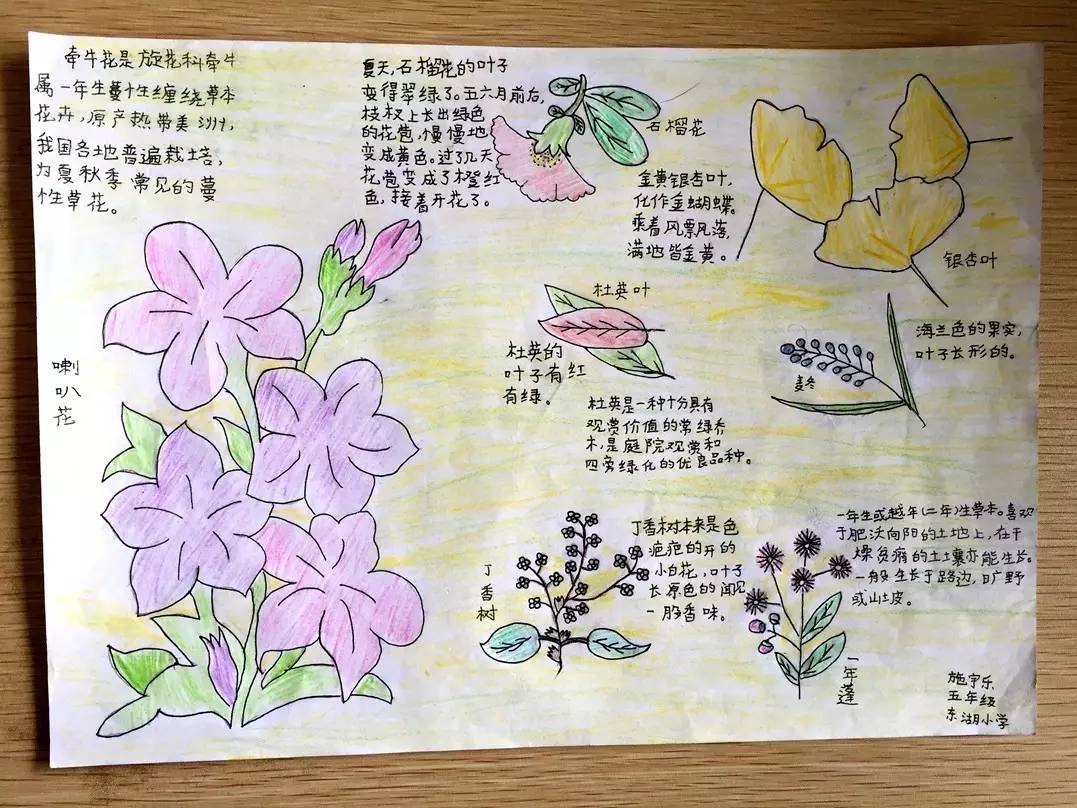 牵牛花是旋花科牵牛
属一年生蔓性缠绕草本
花卉,原产热带美洲,
我国各地普遍栽培,
为夏秋季常见的蔓
性草花。
喇
叭
花
夏天,石榴花的叶子
变得翠绿了。五六月前后,
枝杈上长出绿色
的花苞,慢慢地
变成黄色。过了几天
花苞变成了橙红
色,接着开花了。
石榴花
金黄银杏叶,
化作金蝴蝶。
乘着风飘落,
满地皆金黄。
银杏叶
杜英叶
杜英的
叶子有红
有绿。
杜英是一种十分具有
观赏价值的常绿乔
木,是庭院观赏和
四旁绿化的优良品种。
海兰色的果实,
叶子长形的。
麦冬
丁香树本来是色
的开的
小白花,叶子
长原色的闻见
一股香味。
丁
香
树
一年生或越年(二年)生草本。喜欢
于肥沃向阳的土地上,在干
燥贫瘠的土壤亦能生长。
一般生长于路边,旷野
或山坡。
一
年
蓬
施宇乐
五年级
东湖小学